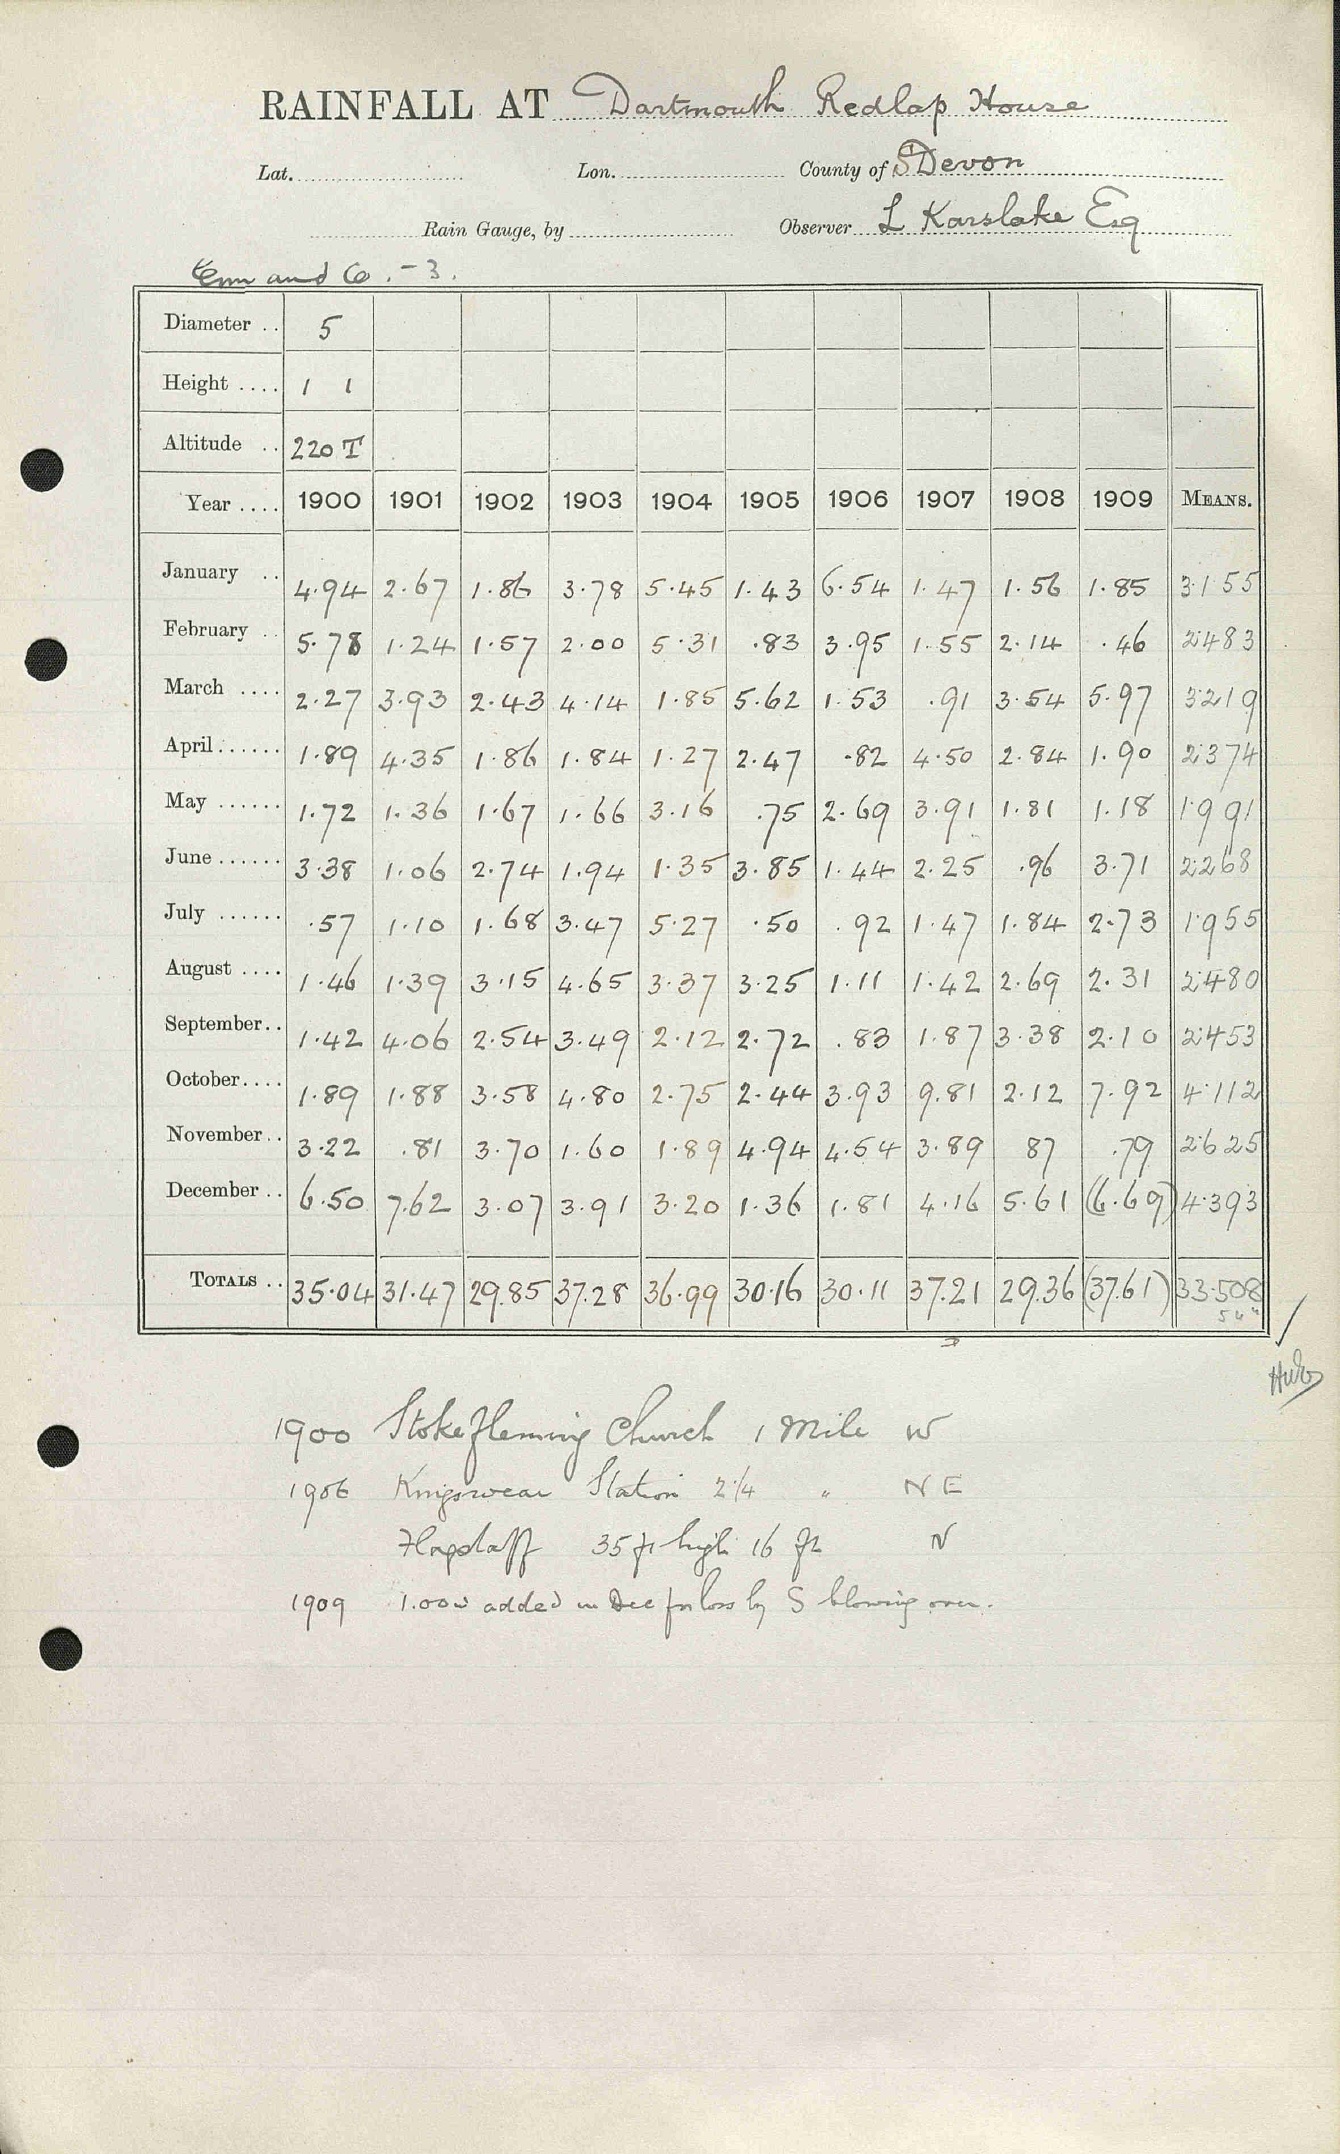 RAINFALL AT Dartmouth Redlap House
Lat. Lon. County of S Devon
Rain Gauge, by Observer L Karslake Esq
and Co. - 3.
Diameter .. 5
Height .... 1 1
Altitude .. 220 T
Year .... 1900 1901 1902 1903 1904 1905 1906 1907 1908 1909 MEANS.
January .. 4.94 2.67 1.86 3.78 5.45 1.43 6.54 1.47 1.56 1.85 3.155
February .. 5.78 1.24 1.57 2.00 5.31 .83 3.95 1.55 2.14 .46 2.483
March .... 2.27 3.93 2.43 4.14 1.85 5.62 1.53 .91 3.54 5.97 3.219
April ...... 1.89 4.35 1.86 1.84 1.27 2.47 .82 4.50 2.84 1.90 2.374
May ...... 1.72 1.36 1.67 1.66 3.16 .75 2.69 3.91 1.81 1.18 1.991
June ...... 3.38 1.06 2.74 1.94 1.35 3.85 1.44 2.25 .96 3.71 2.268
July ...... .57 1.10 1.68 3.47 5.27 .50 .92 1.47 1.84 2.73 1.955
August .... 1.46 1.39 3.15 4.65 3.37 3.25 1.11 1.42 2.69 2.31 2.480
September .. 1.42 4.06 2.54 3.49 2.12 2.72 .83 1.87 3.38 2.10 2.453
October .... 1.89 1.88 3.58 4.80 2.75 2.44 3.93 9.81 2.12 7.92 4.112
November .. 3.22 .81 3.70 1.60 1.89 4.94 4.54 3.89 87 .79 2.625
December .. 6.50 7.62 3.07 3.91 3.20 1.36 1.81 4.16 5.61 (6.69) 4.393
TOTALS .. 35.04 31.47 29.85 37.28 36.99 30.16 30.11 37.21 29.36 (37.61) 33.508
1900 Stoke Fleming Church 1 Mile W
1906 Kingswear Station 2 1/4 " NE
Flagstaff 35 ft high 16 ft N
1909 1.00 added in Dec for loss by S blowing over.